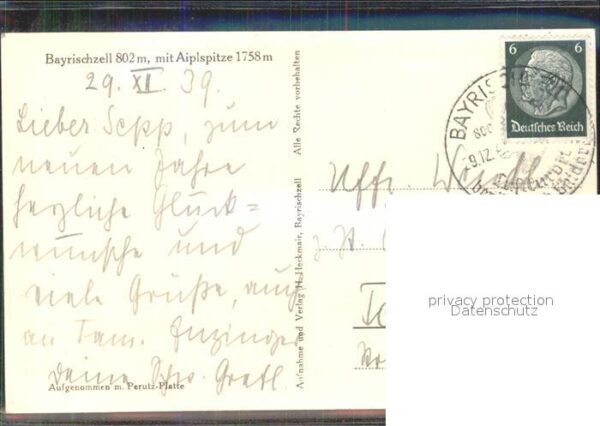 Bayrischzell 802m, mit Aiplspitze 1758m
29. XI. 39.
Lieber Sepp, zum
neuen Jahre
herzliche Glück=
wünsche und
viele Grüße, auch
an Fam. Enzinger
Deine Schw. Gretl.
Aufgenommen m. Perutz-Platte
Aufnahme und Verlag H. Heckmair, Bayrischzell Alle Rechte vorbehalten
6 6
Deutsches Reich
BAYRISCHZELL
Uffz.
privacy protection
Datenschutz